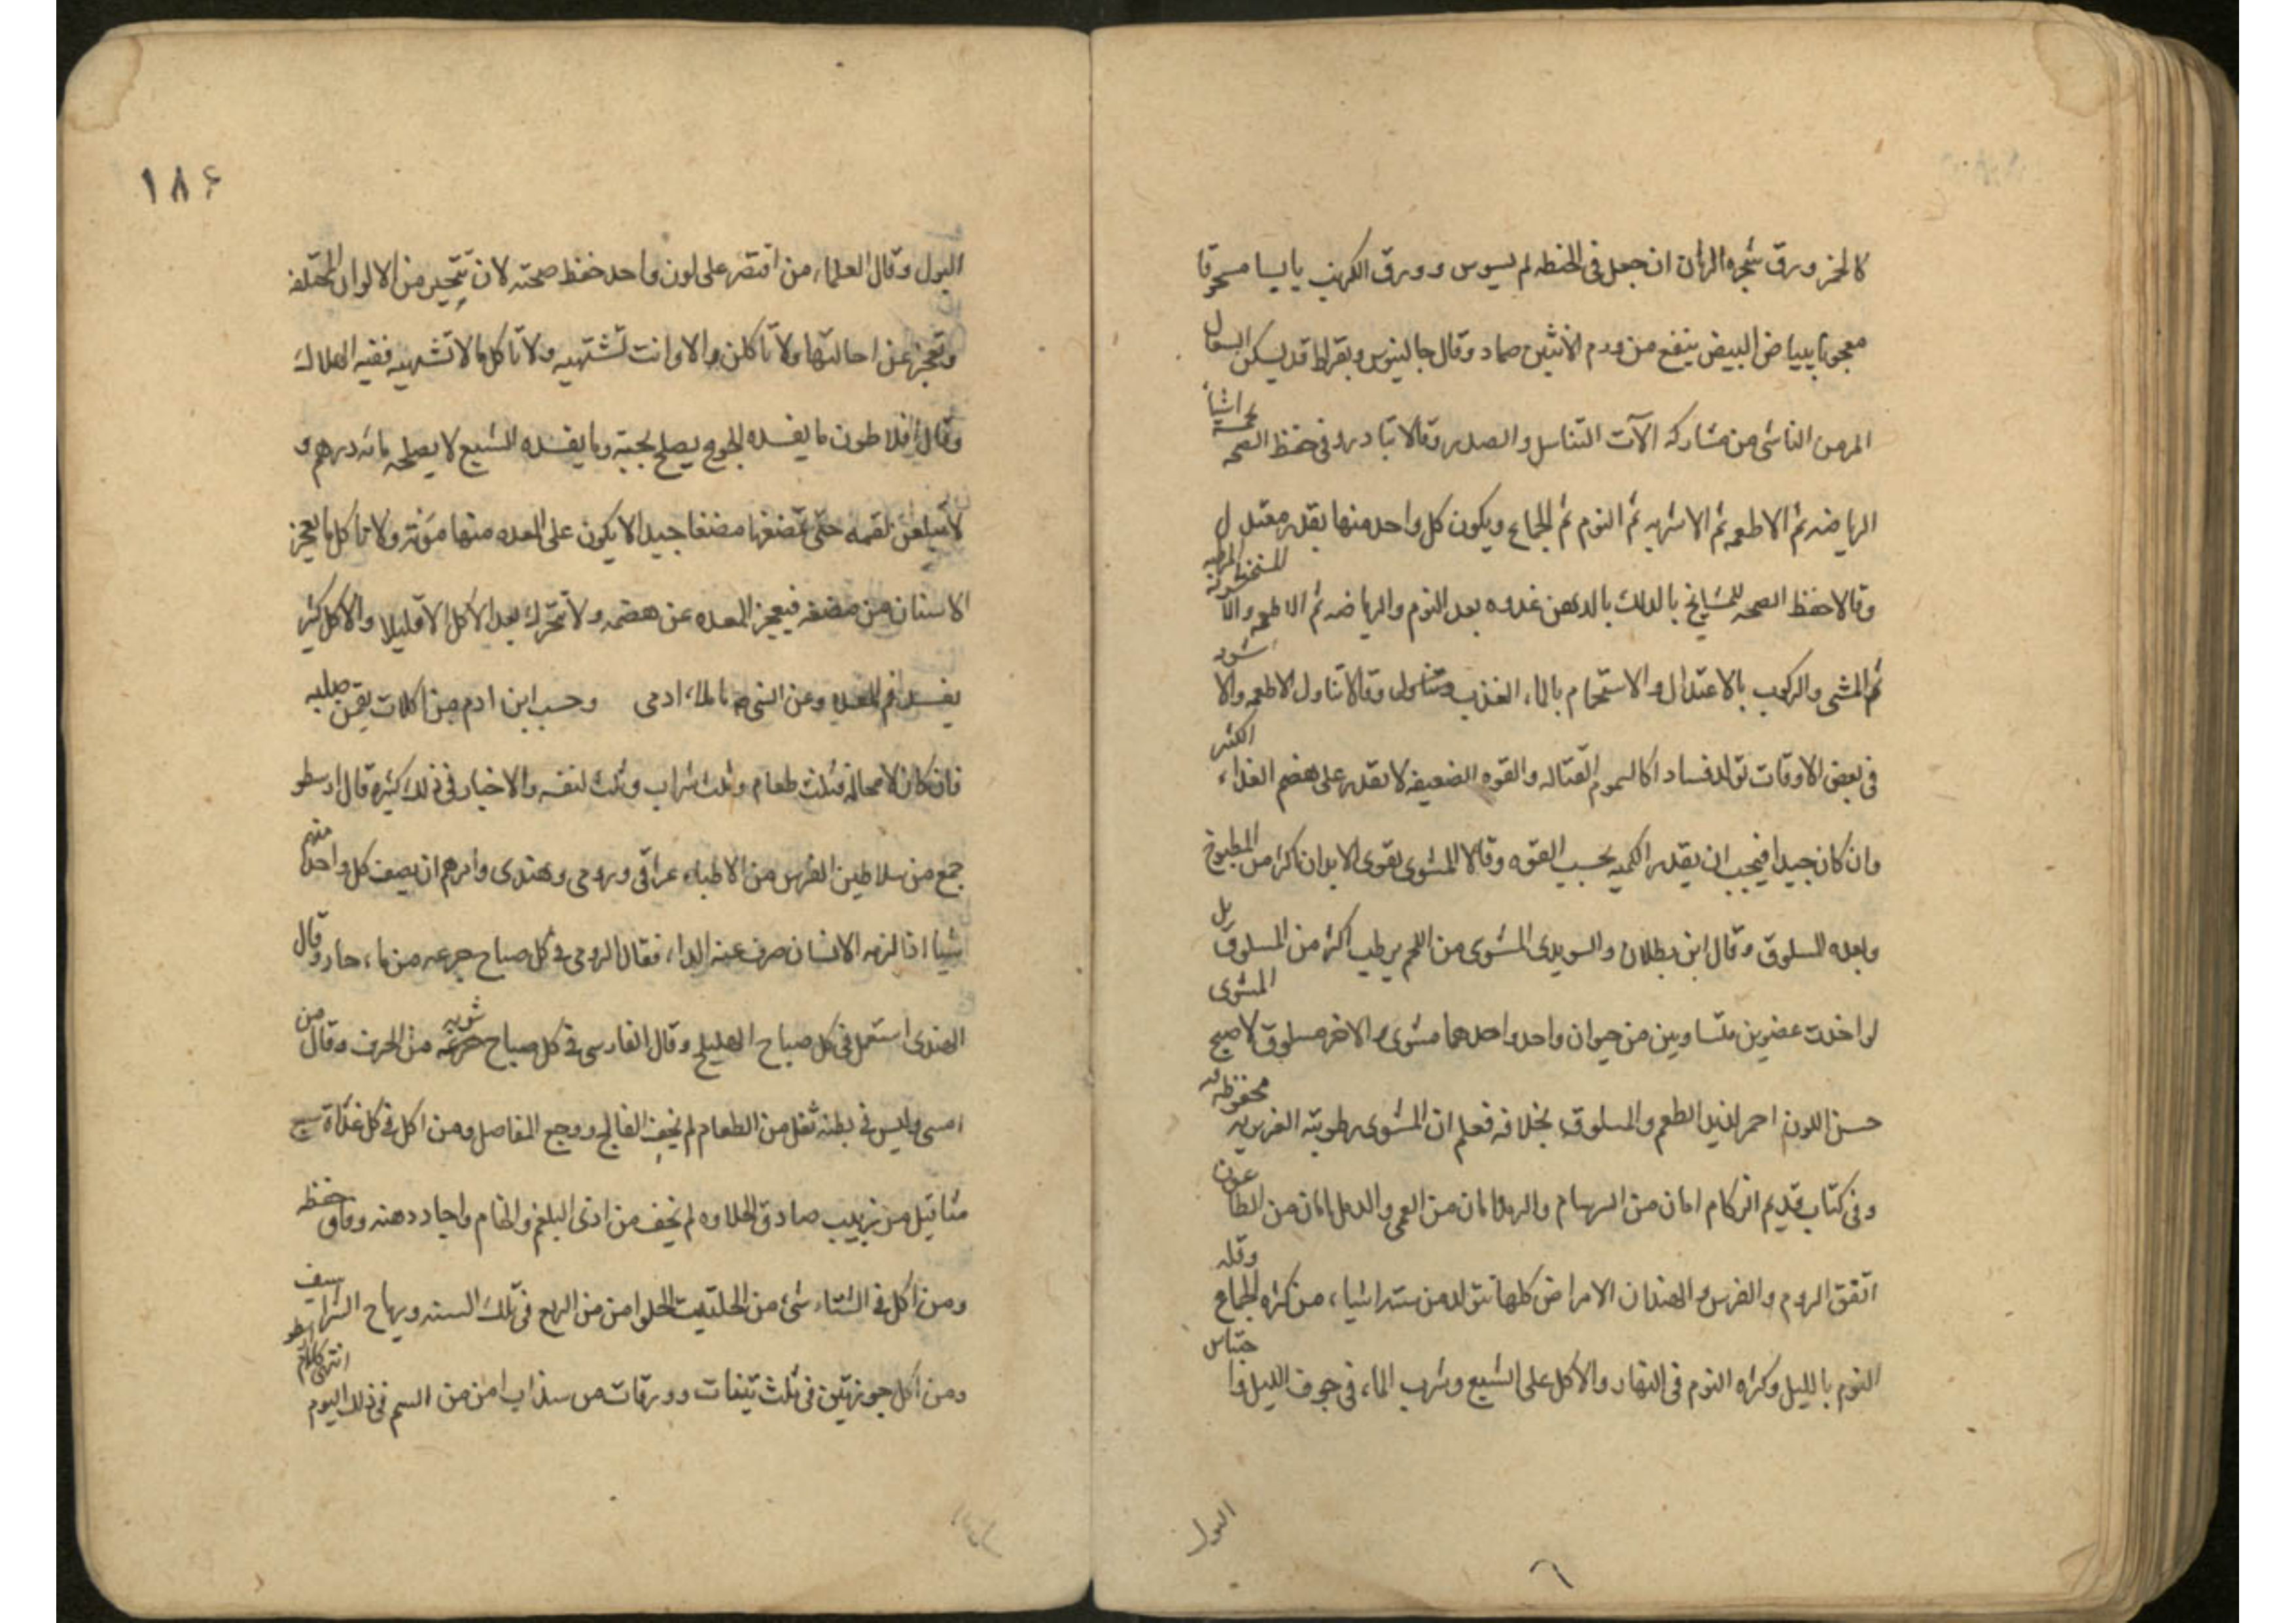 كالخز ورق شجره الرمان ان جعل فى الحنطه لم يسوس وورق الكرنب يابسا مسحوقا
معجونا ببياض البيض ينفع من ورم الانثيين ضماد وقال جالينوس وبقراط قد يسكن السعال
المزمن الناشى من مشاركه الآت التناسل والصدر وقالا تبادر وفى حفظ الصحه بخمسه اشيآ
الرياضه ثم الاطعمه ثم الاشربه ثم النوم ثم الجماع ويكون كل واحد منها بقدر معتدل
وقالا حفظ الصحه للمشايخ بالدلك بالدهن غدوه بعد النوم والرياضه ثم الاطعمه المسخنه المرطبه
ثم المشى والركوب بالاعتدال والاستحمام بالماء العذب وقالا تناول الاطعمه والاشربه
فى بعض الاوقات تولد فسادا كالسموم القتاله والقوه الضعيفه لا تقدر على هضم الغذاء اكثر
وان كان جيدا فيجب ان يقدر الكميه بحسب القوه وقالا المشوى يقوى الابدان اكثر من المطبوخ
وبعده المسلوق وقال ابن بطلان والسويدى المشوى من اللحم يرطب اكثر من المسلوق بل
لو اخذت عضوين متساويين من حيوان واحد واحدهما مشوى والاخر مسلوق لاصبح المشوى
حسن اللون احمر لذيذ الطعم والمسلوق بخلافه فعلم ان المشوى رطوبته الغريزيه محفوظه
وفى كتاب قديم الزكام امان من السهام والرمد امان من العمى والدمل امان من الطاعون
اتفق الروم والفرس والهند ان الامراض كلها تتولد من سته اشياء من كثره الجماع وقله
النوم بالليل وكثره النوم فى النهار والاكل على الشبع وشرب الماء فى جوف الليل واحتباس
البول
١٨٤
البول وقال العلماء من اقتصر على لون واحد حفظ صحته لان تتحير من الالوان المختلفه
وتعجز عن احالتها ولا تاكلن الا وانت تشتهيه ولا تاكل ما لا تشتهيه ففيه الهلاك
وقال افلاطون ما يفسده الجوع يصلح بحبة وما يفسده الشبع لا يصلحه مائه درهم و
لا تبلعن لقمه حتى تمضغها مضغا جيدا لا يكون على المعده منها مؤنته ولا تاكل ما يعجز
الاسنان من مضغه فيعجز المعده عن هضمه ولا تتحرك بعد الاكل الا قليلا والاكل كثير
يفسد فم المعده وعن النبى ادمى وحسب ابن ادم من اكلات يقمن صلبه
فان كان لا محاله فثلث طعام وثلث شراب وثلث لنفسه والاخبار فى ذلك كثيره قال ارسطو
جمع من سلاطين الفرس من الاطباء عراقى ورومى وهندى وامرهم ان يصف كل واحد منهم
شيا اذا لزمه الانسان صرف عنه الداء فقال الرومى فى كل صباح جرعه من ماء حار وقال
الهندى استعمل فى كل صباح الهليلج وقال الفارسى فى كل صباح شربه من الحرف وقال من
امسى وليس فى بطنه ثقل من الطعام لم يخف الفالج ووجع المفاصل ومن اكل فى كل غداة سبع
مثاقيل من زبيب صادق الحلاوه لم يخف من اذى البلغم والخام واجاد ذهنه وفاق حفظه
ومن اكل فى الشتاء شئ من الحلتيت الحلو امن من الربع فى تلك السنه ورياح الشراسيف
ومن اكل جوزتين فى ثلث تينات وورقات من سذاب امن من السم فى ذلك اليوم انتهى كلام ارسطو